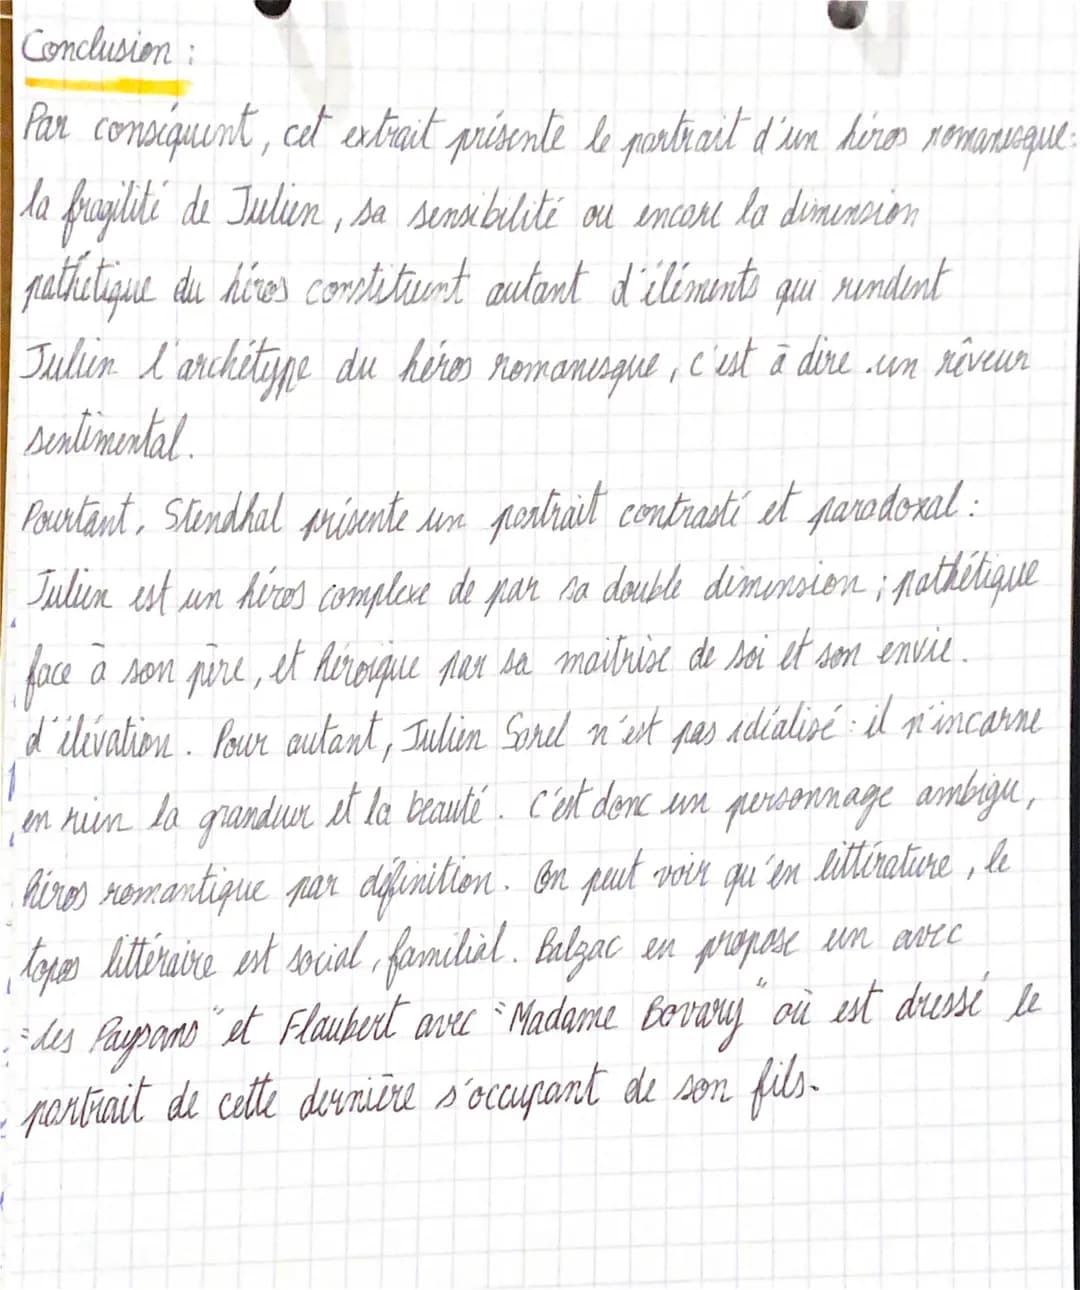 Conclusion :
Par conséquent, cet extrait présente le portrait d'un héros romanesque :
la fragilité de Julien, sa sensibilité ou encore la dimension
pathétique du héros constituent autant d'éléments qui rendent
Julien l'archétype du héros romanesque, c'est à dire un rêveur
sentimental.
Pourtant, Stendhal présente un portrait contrasté et paradoxal :
Julien est un héros complexe de par sa double dimension ; pathétique
face à son père, et héroïque par sa maitrise de soi et son envie
d'élévation. Pour autant, Julien Sorel n'est pas idéalisé : il n'incarne
en rien la grandeur et la beauté. C'est donc un personnage ambigu,
héros romantique par définition. On peut voir qu'en littérature, le
topos littéraire est social, familial. Balzac en propose un avec
"des Paysans" et Flaubert avec "Madame Bovary" où est dressé le
portrait de cette dernière s'occupant de son fils.